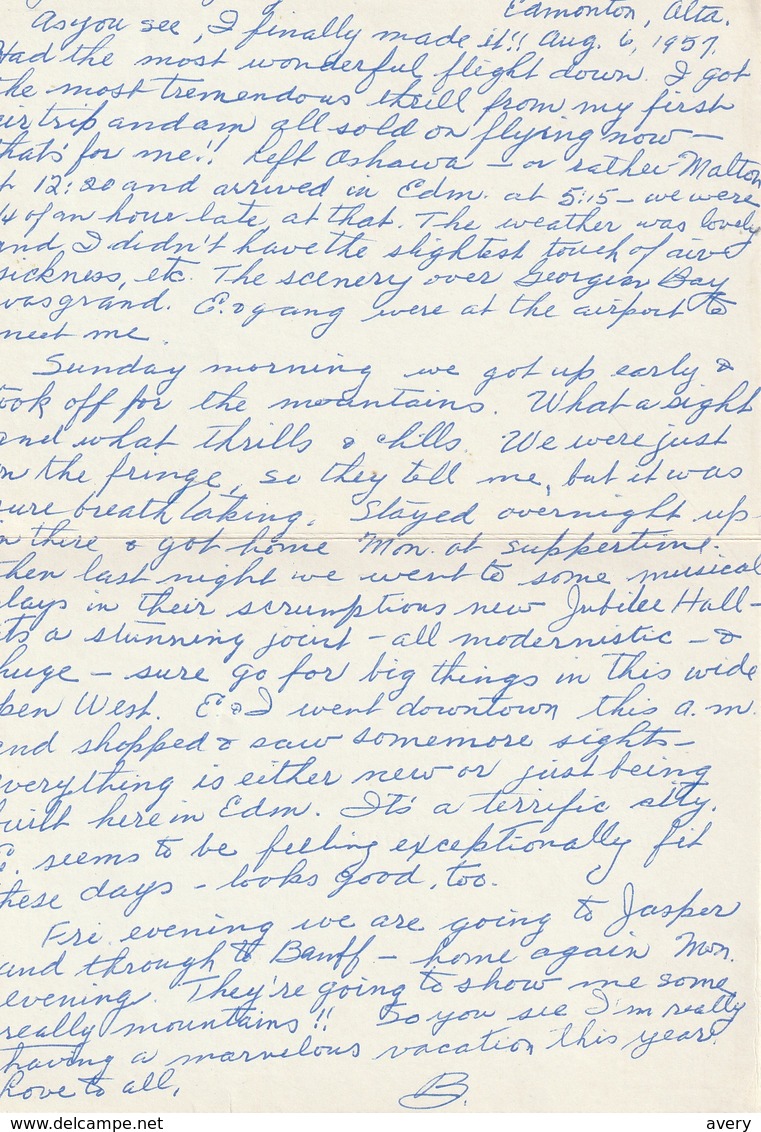 Edmonton, Alta.
As you see, I finally made it!! Aug. 6, 1957.
Had the most wonderful flight down. I got
the most tremendous thrill from my first
air trip and am all sold on flying now –
that's for me!! Left Oshawa – or rather Malton
t 12:20 and arrived in Edm. at 5:15 – we were
1/4 of an hour late at that. The weather was lovely
and I didn't have the slightest touch of air
sickness, etc. The scenery over Georgian Bay
was grand. E. & gang were at the airport to
meet me.
Sunday morning we got up early &
ook off for the mountains. What a sight
and what thrills & chills. We were just
on the fringe, so they tell me, but it was
ure breath taking. Stayed overnight up
in there & got home Mon. at suppertime.
then last night we went to some musical
lays in their scrumptious new Jubilee Hall –
its a stunning joint – all modernistic – &
huge – sure go for big things in this wide
pen West. E & I went downtown this a.m.
and shopped & saw somemore sights –
verything is either new or just being
uilt here in Edm. It's a terrific city.
E. seems to be feeling exceptionally fit
these days – looks good, too.
Fri. evening we are going to Jasper
and through to Banff – home again Mon.
evening. They're going to show me some
really mountains!! So you see I'm really
having a marvelous vacation this year.
Love to all,
B.
www.delcampe.net
avery